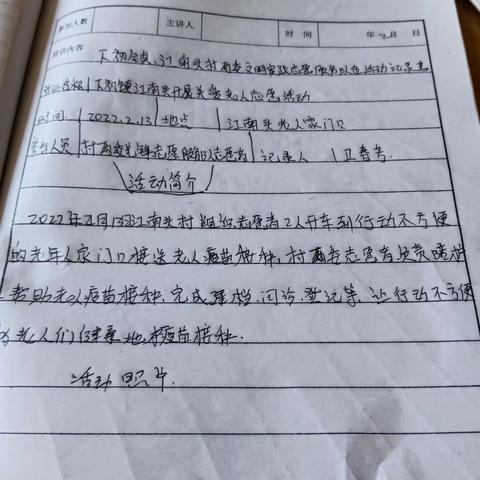 参加人数 主讲人 时间 年2月 日
培训内容 下初镇江南夼村两委文明实践志愿服务队伍活动记录表
活动名称 下初镇江南夼开展关爱老人志愿活动
时间 2022.2.13 地点 江南夼老人家门口
参与人员 村两委文明志愿服务队志愿者 记录人
活动简介
2022年2月13日江南夼村组织志愿者2人开车到行动不方便
的老年人家门口接送老人疫苗接种,村两委志愿者负责
帮助老人疫苗接种,完成建档、问诊、登记等,让行动不方便
的老人们健康地疫苗接种.
活动照片.